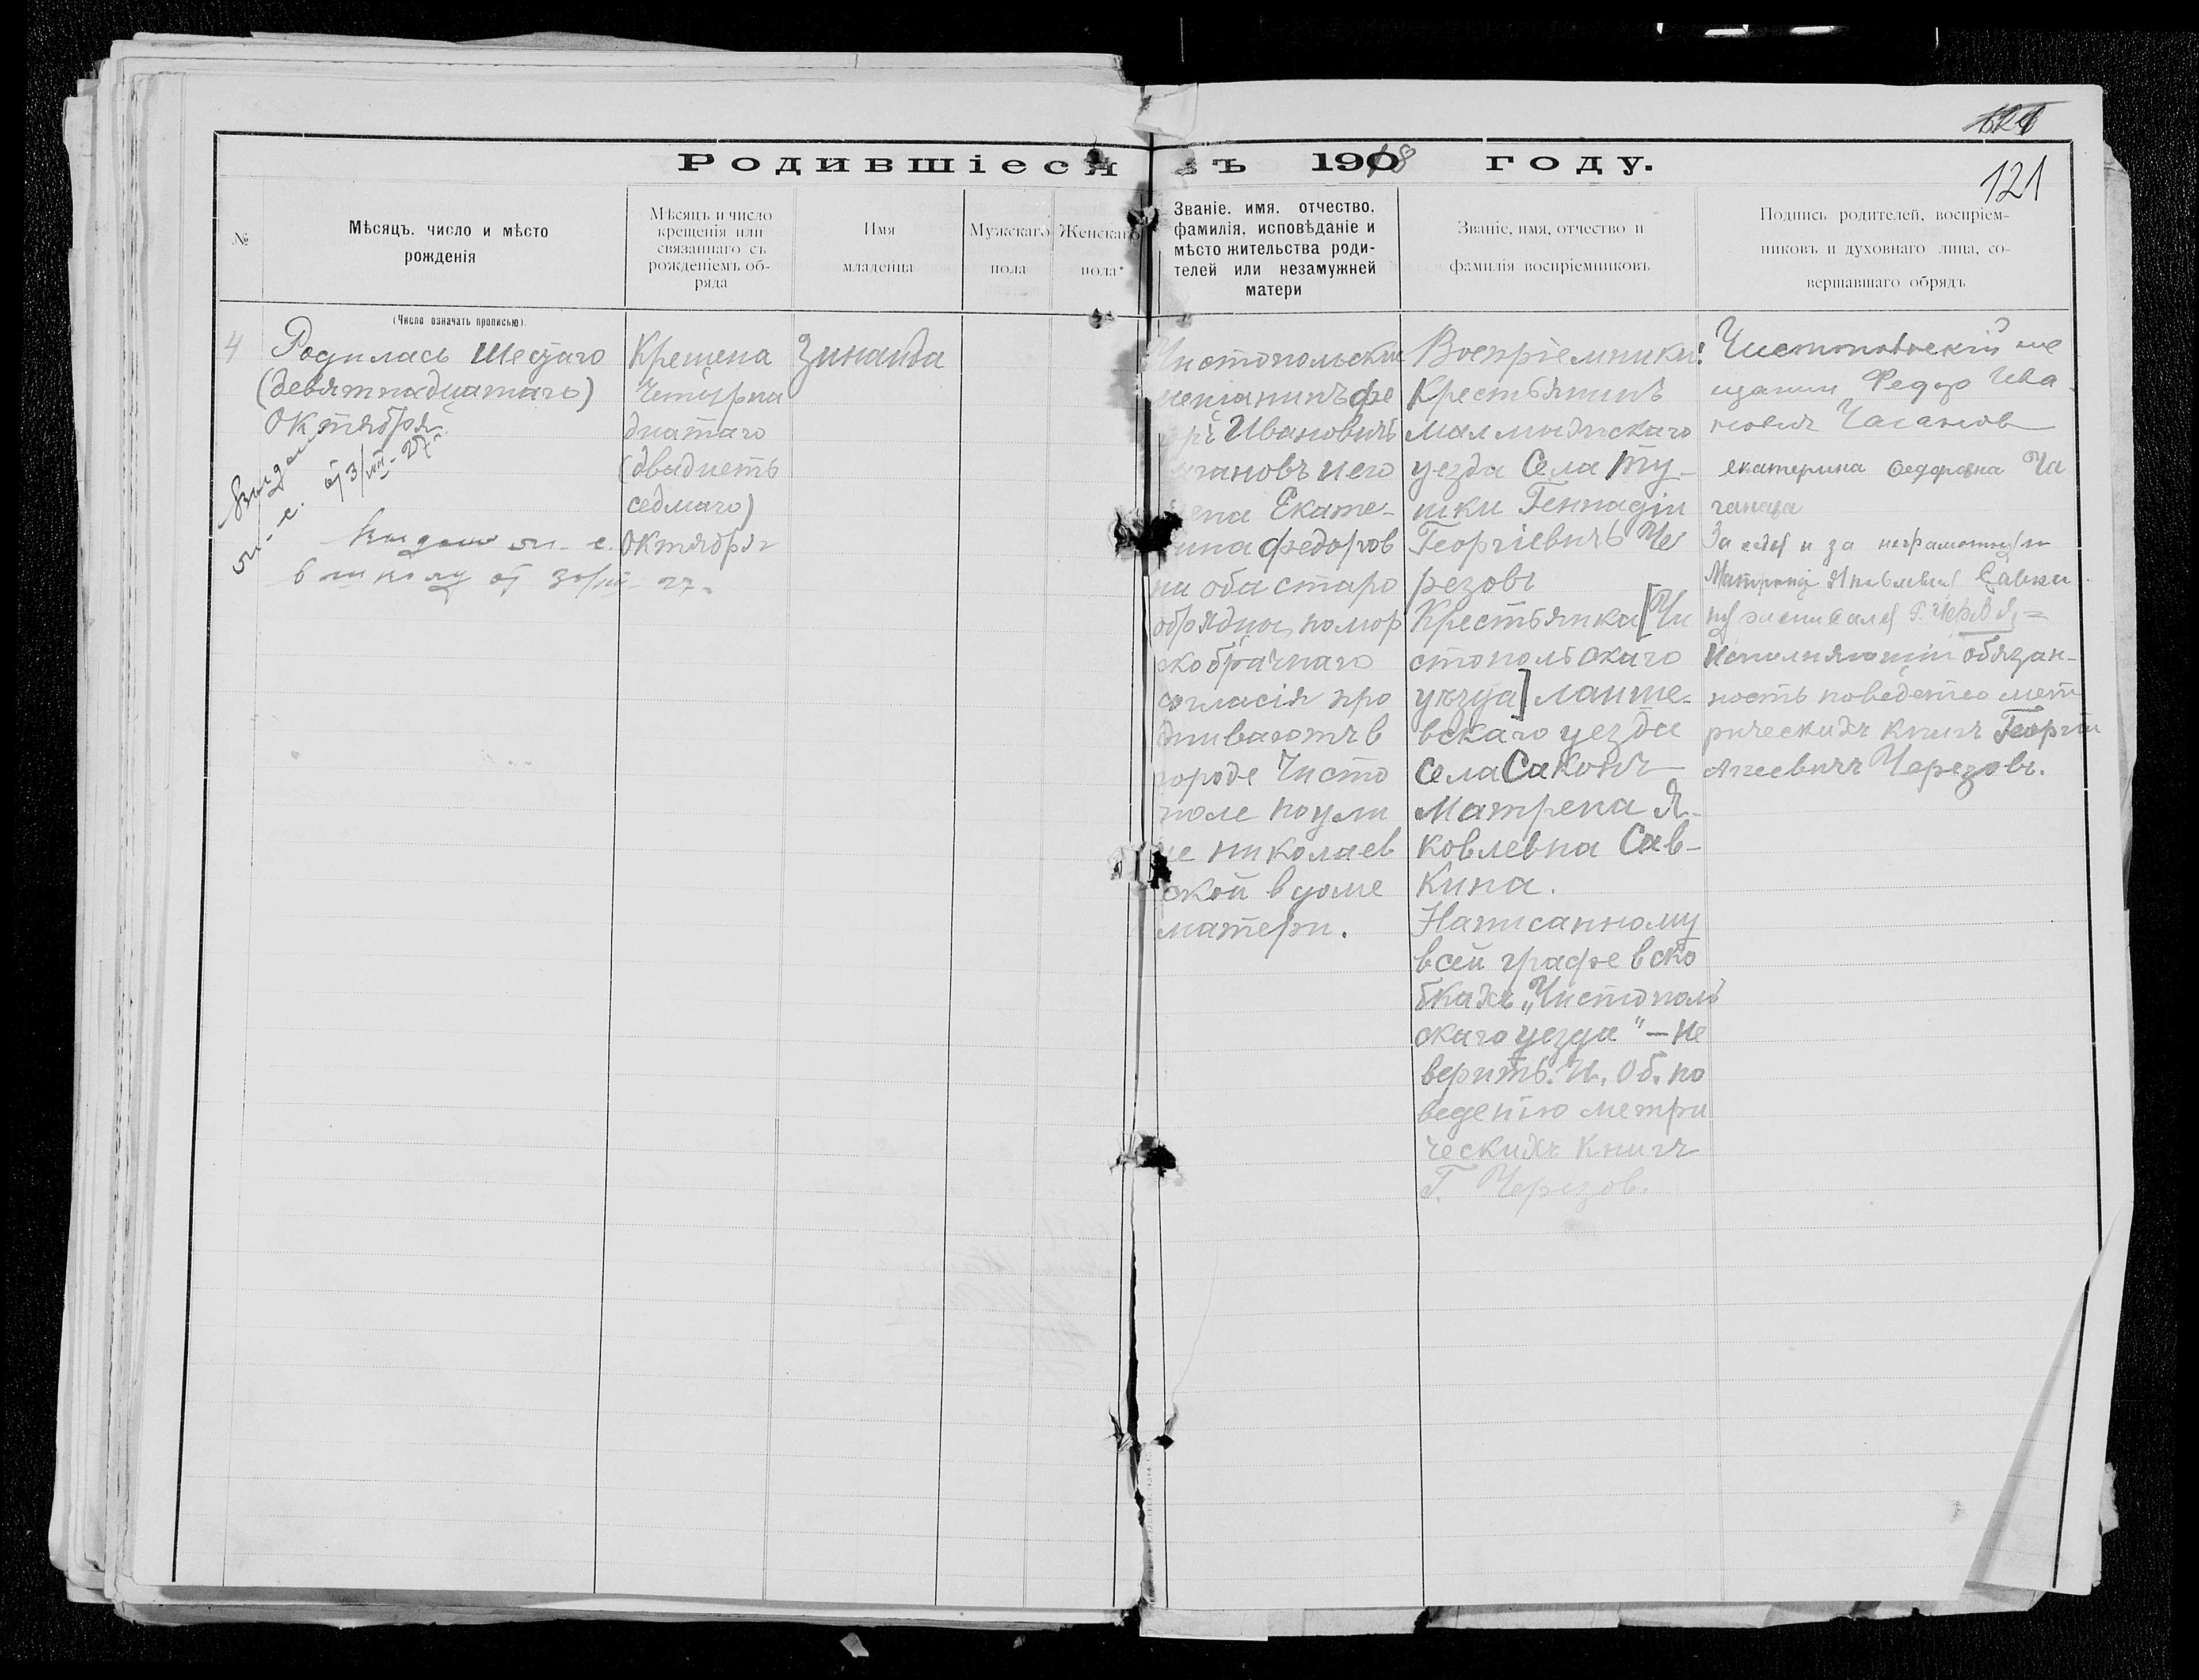 121
Родившіеся въ 1918 году.
№
Мѣсяцъ, число и мѣсто
рожденія
Мѣсяцъ и число
крещенія или
связаннаго съ
рожденіемъ об-
ряда
Имя
младенца
Мужскаго
пола
Женскаго
пола
Званіе, имя, отчество,
фамилія, исповѣданіе и
мѣсто жительства роди-
телей или незамужней
матери
Званіе, имя, отчество и
фамилія воспріемниковъ
Подпись родителей, воспріем-
никовъ и духовнаго лица, со-
вершавшаго обрядъ
(Число означать прописью).
4
Родилась Шестаго
(девятнадцатаго)
Октября
в школу от 30/
Крещена
Четырна
дцатаго
(двадцеть
седмаго)
Октября
Зинаида
Чистопольскии
мещанинъ Фе
Ивановичъ
и его
Екате-
Федоров
на оба старо
обрядцы помор
скобрачнаго
согласія про
живаютъ в
городе Чисто
поле по ули
це Николаев
ской в доме
матери.
Воспріемники:
Крестьянинъ
Малмыжскаго
уезда Села Ту-
шки Геннадіи
Георгіевичъ Че
резовъ
Крестьянка [Чи
стопольскаго
уезда] Лаише-
вскаго уезда
Села Саконъ
Матрена Я-
ковлевна Сав-
кина.
Написанному
в сеи графе в ско
бкахъ „Чистополь
скаго уезда" — не
верить. И. Об. по
веденію метри
ческихъ книгъ
Г. Черезов.
Чистопольскій ме
щанин Федор Ива
нович Чаганов
Екатерина Федоровна Ча
ганова
За себя и за неграмотную
Матрену Яковлевну Савки
ну
Исполняющіи обязан-
ность по веденію мет
рическихъ книгъ Георгіи
Агеевичъ Черезовъ.